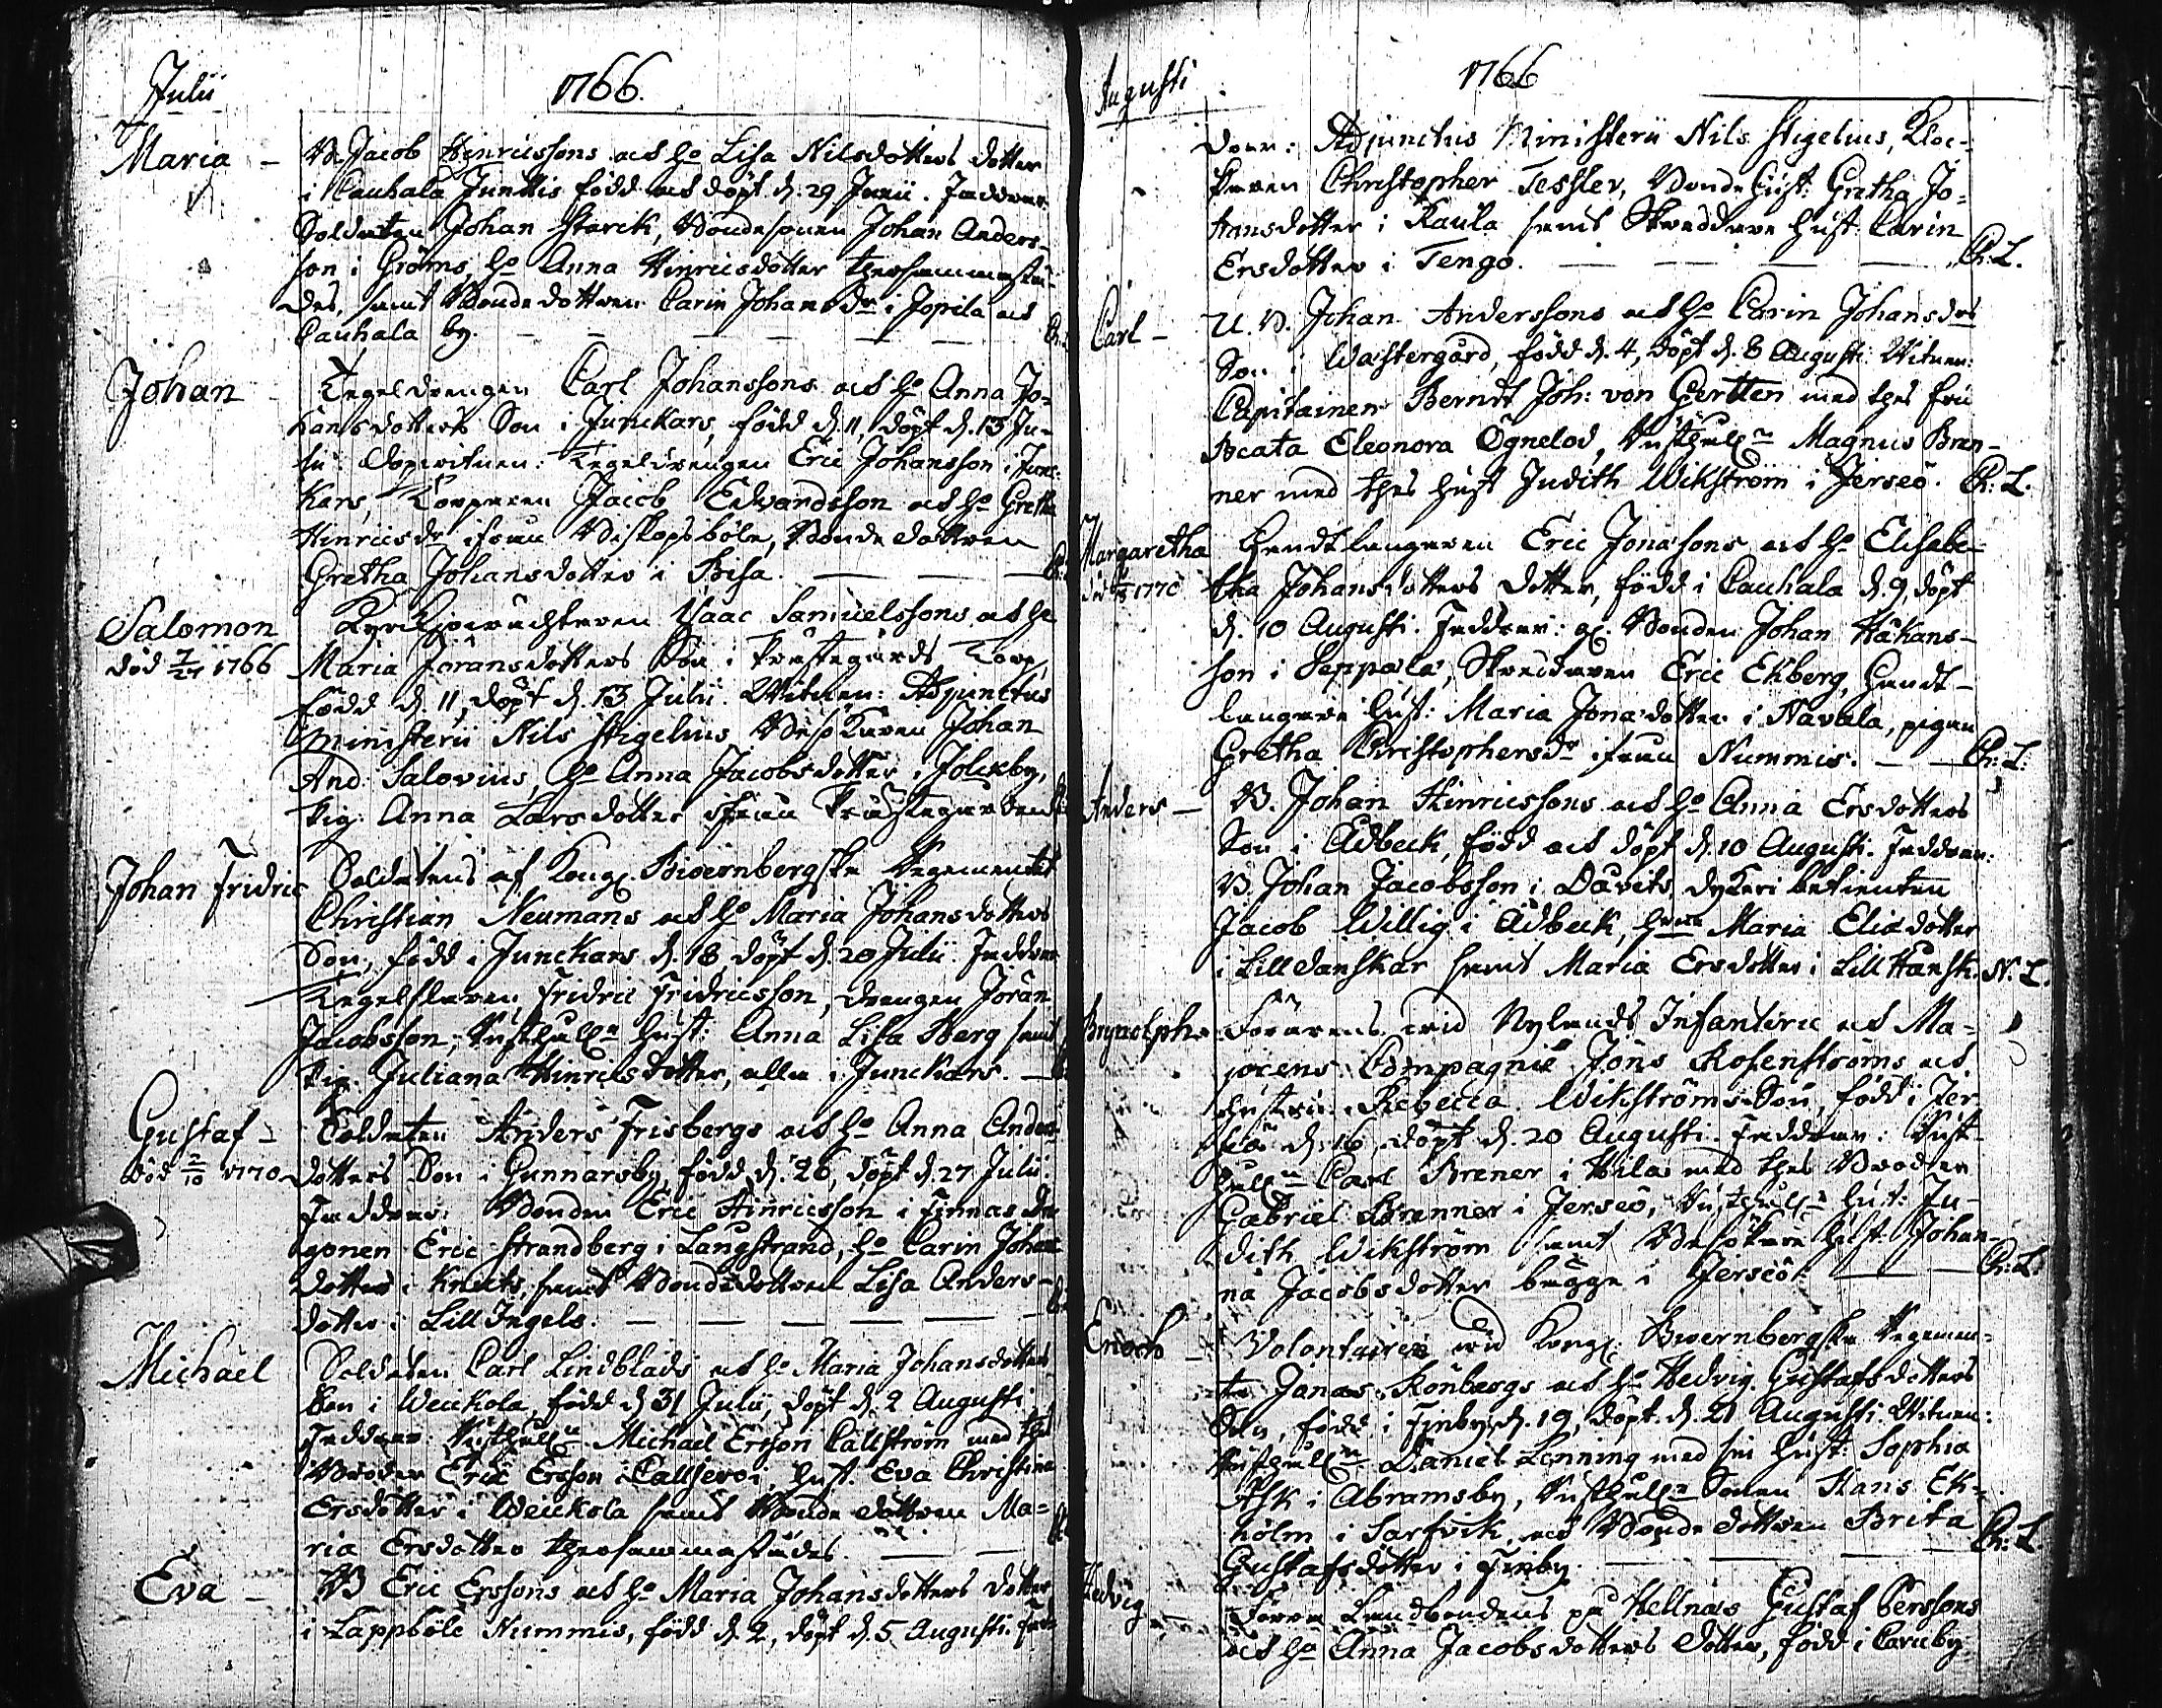 Julii 1766.
Maria – B. Jacob Hinricssons och Ho Lisa Nilsdotters dotter
i Cauhala Junttis född och döpt d. 29 Junii. Faddrar
Soldaten Johan Starck, Bondesonen Johan Anders-
son i Gröms, Ho Anna Hinricsdotter thersammastä-
des, samt Bonde dottren Carin Johansdr i Jopila och
Cauhala by. – – – – –
Johan – Tegeldrengen Carl Johanssons och Ho Anna Jo-
hansdotters Son i Junckars, född d. 11, döpt d. 13 Ju-
lii. Dopvitnen: Tegeldrengen Eric Johansson i Junc-
kars, Torparen Jacob Edvardsson och Ho Gretha
Hinricsdr ifrån Biskopsböle, Bonde dottren
Gretha Johansdotter i Bisa. – – –
Salomon Kyrckiowächtaren Isaac Samuelssons och Ho
död 7/24 1766 Maria Göransdotters Son i Prästegårds Torp,
född d. 11, döpt d. 13 Julii. Witnen: Adjunctus
Ministerii Nils Stigelius, Besökaren Johan
And: Salovius, Ho Anna Jacobsdotter i Jolckby,
Pig. Anna Larsdotter ifrån Prästegården
Johan Fridric Soldatens af Kongl. Biörnbergske Regementet
Christian Neumans och Ho Maria Johansdotters
Son, född i Junckars d. 18 döpt d. 20 Julii. Faddrar
Tegelslaren Fridric Fridricsson, drengen Jöran
Jacobsson, Rusthåll. Hust: Anna Lisa Berg samt
Pig. Juliana Hinricsdotter, alla i Junckars. –
Gustaf – Soldaten Anders Frisbergs och Ho Anna Anders
död 2/10 1770 dotters Son i Gunnarsby, född d. 26, döpt d. 27 Julii
Faddrar: Bonden Eric Hinricsson i Finnas Dra
gonen Eric Strandberg i Langstrand, Ho Carin Johans
dotter i Knuts, samt Bondedottren Lisa Anders-
dotter i Lill Ingels. – – – – –
Michaël Soldaten Carl Lindblads och Ho Maria Johansdotters
Son i Weickola, född d 31 Julii, döpt d. 2 Augusti
Faddrar: Rusthåll. Michael Ersson Callström med thes
Broder Eric Ersson i Callsero, Hust. Eva Christina
Ersdotter i Weickola samt Bonde dottren Ma-
ria Ersdotter thersammastädes. – –
Eva – B Eric Erssons och Ho Maria Johansdotters dotter
i Lappböle Nummis, född d. 2, döpt d. 5 Augusti. Fad-
Augusti 1766
drar: Adjunctus Ministerii Nils Stigelius, Kloc-
karen Christopher Tessler, Bonde Hust: Gretha Jo-
hansdotter i Kaula samt Skreddare Hust: Carin
Ersdotter i Tengo. – – – – Ch: L.
Carl – U. B. Johan Anderssons och Ho Carin Johansdrs
Son i Wästergård, född d. 4, döpt d. 8 Augusti. Witnen:
Capitainen Berndt Joh: von Gertten med thes Fru
Beata Eleonora Ögnelod, Rusthåll. Magnus Bren-
ner med thes Hust Judith Wikström i Jerseö. Ch: L.
Margaretha Handtlangaren Eric Jonassons och Ho Elisabe-
död 1770 tha Johansdotters dotter, född i Cauhala d. 9, döpt
d. 10 Augusti. Faddrar: Bonden Johan Håkans-
son i Seppälä, Skreddaren Eric Ekberg, Handt-
langare Hust: Maria Jonædotter i Navala, pigan
Gretha Christophersdr ifrån Nummis. – Ch: L.
Anders – B. Johan Hinricssons och Ho Anna Ersdotters
Son i Ådbeck, född och döpt d. 10 Augusti. Faddrar:
B. Johan Jacobsson i Davits, betienten
Jacob Willig i Ådbeck, Maria Eliædotter
i Lilldanskar samt Maria Ersdotter i Lill N. L.
Brynolph – Förarens vid Nylands Infanterie och Ma-
jorens Compagnie Jöns Rosenströms och
Hustru Rebecca Wikströms Son, född i Jer
seö d. 16, döpt d. 20 Augusti. Faddrar: Rust-
håll. Carl Brener i Kila med thes Broder
Gabriel Brenner i Jerseö, Rusthåll. Hust: Ju-
dith Wikström samt Besökare Hust Johan-
na Jacobsdotter begge i Jerseö – – Ch: L.
Enoch – Volontairen vid Kongl. Biörnbergske Regemen-
te Jonas Rönbergs och Ho Hedvig Gustafsdotters
Son, född i Finby d. 19, döpt d. 21 Augusti. Witnen:
Rusthåll. Daniel Lönning med sin Hust: Sophia
Ask i Abramsby, Rusthåll. Sonen Hans Ek-
holm i Sarfvik och Bonde dottren Brita
Gustafsdotter i Finby. – – – Ch: L
Hedvig – Förra Landbondens på Hellnäs Gustaf Perssons
och Ho Anna Jacobsdotters dotter, född i Caruby